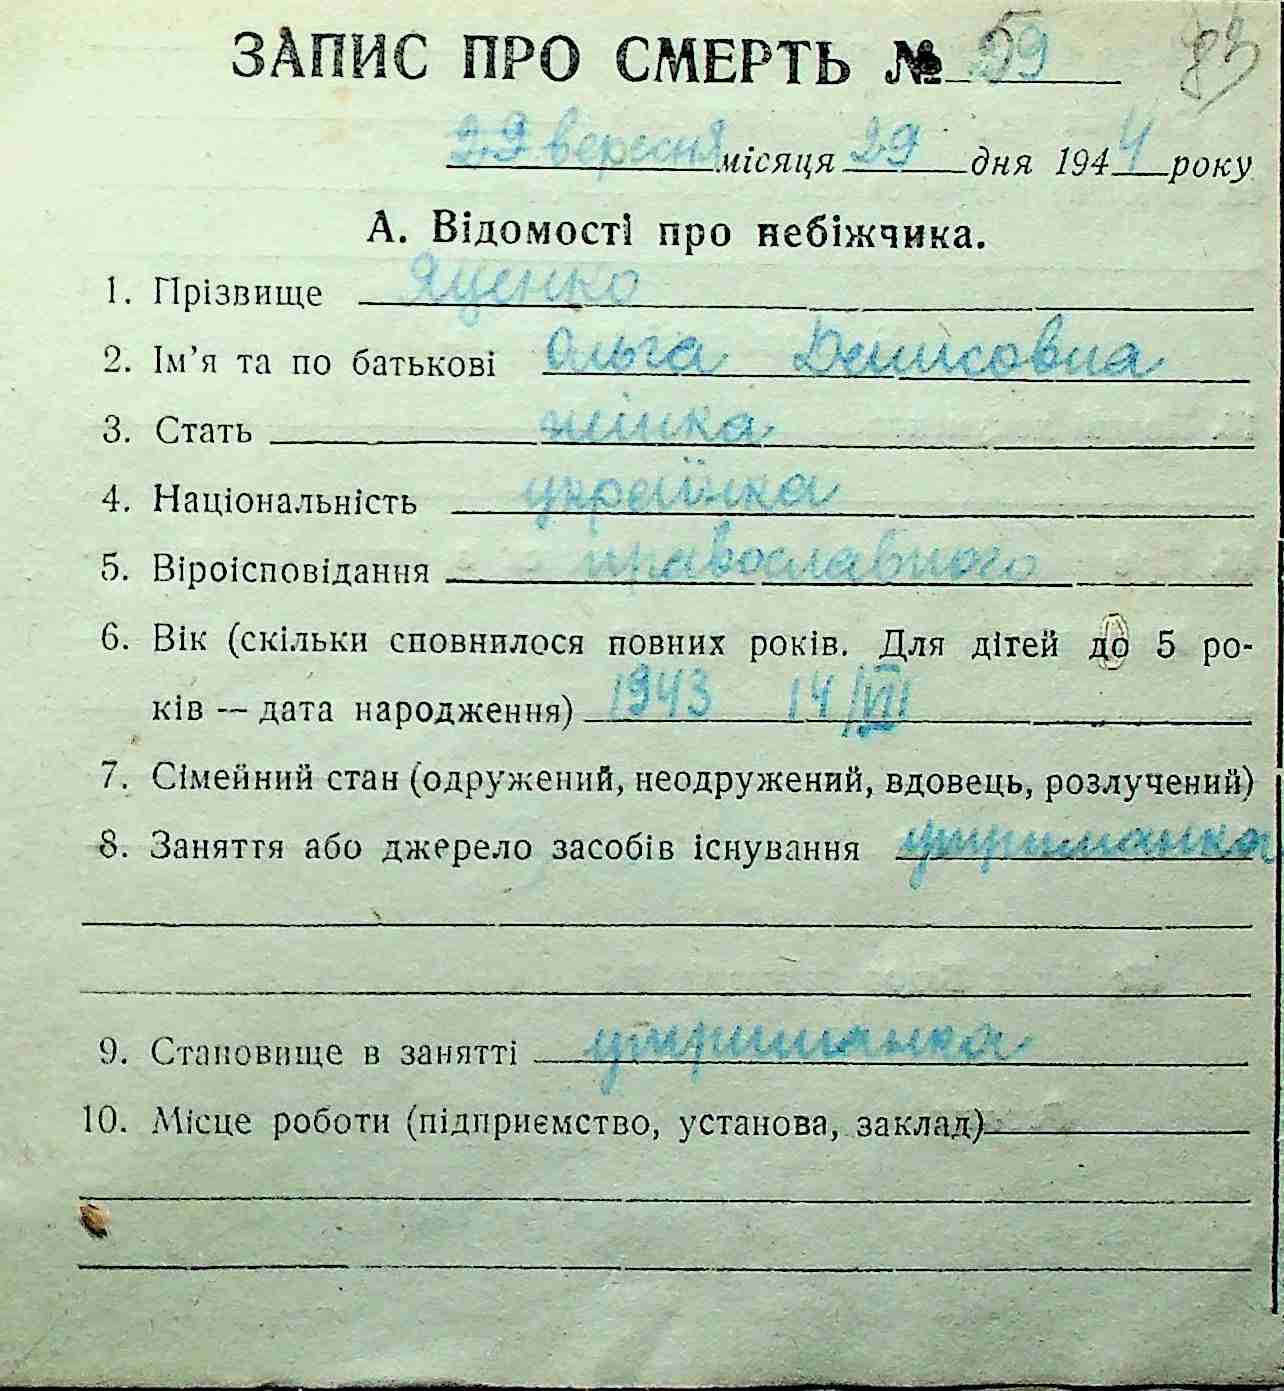 ЗАПИС ПРО СМЕРТЬ № 59 83
29 вересня місяця 29 дня 1944 року
А. Відомості про небіжчика.
1. Прізвище Яценко
2. Ім'я та по батькові Ольга Денисовна
3. Стать жінка
4. Національність українка
5. Віроісповідання православного
6. Вік (скільки сповнилося повних років. Для дітей до 5 ро-
ків — дата народження) 1943 14/VII
7. Сімейний стан (одружений, неодружений, вдовець, розлучений)
8. Заняття або джерело засобів існування утриманка
9. Становище в занятті утриманка
10. Місце роботи (підприємство, установа, заклад)